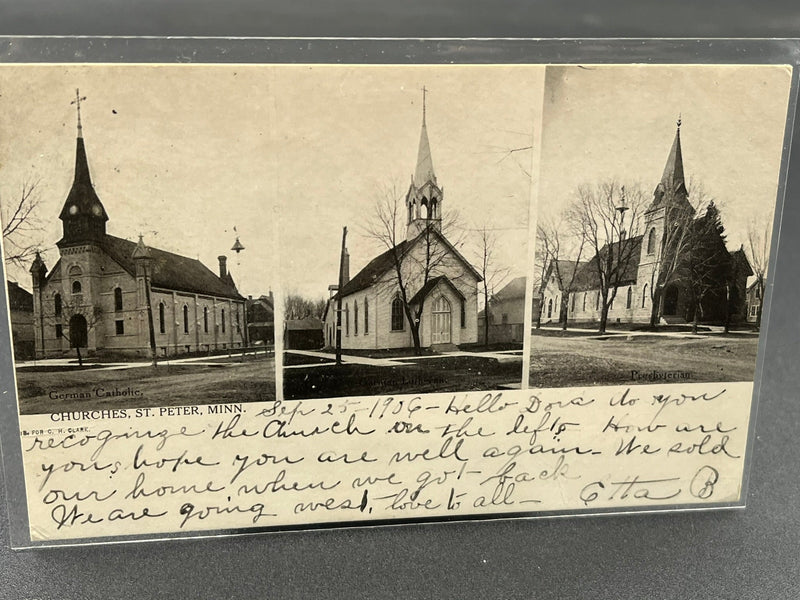 German Catholic,
German Lutheran.
Presbyterian.
CHURCHES, ST. PETER, MINN.
FOR C. H. CLARK.
Sep 25-1906- Hello Dora do you
recoginze the Church on the left. How are
you, hope you are well again- We sold
our home when we got back
We are going west, love to all- Etta B